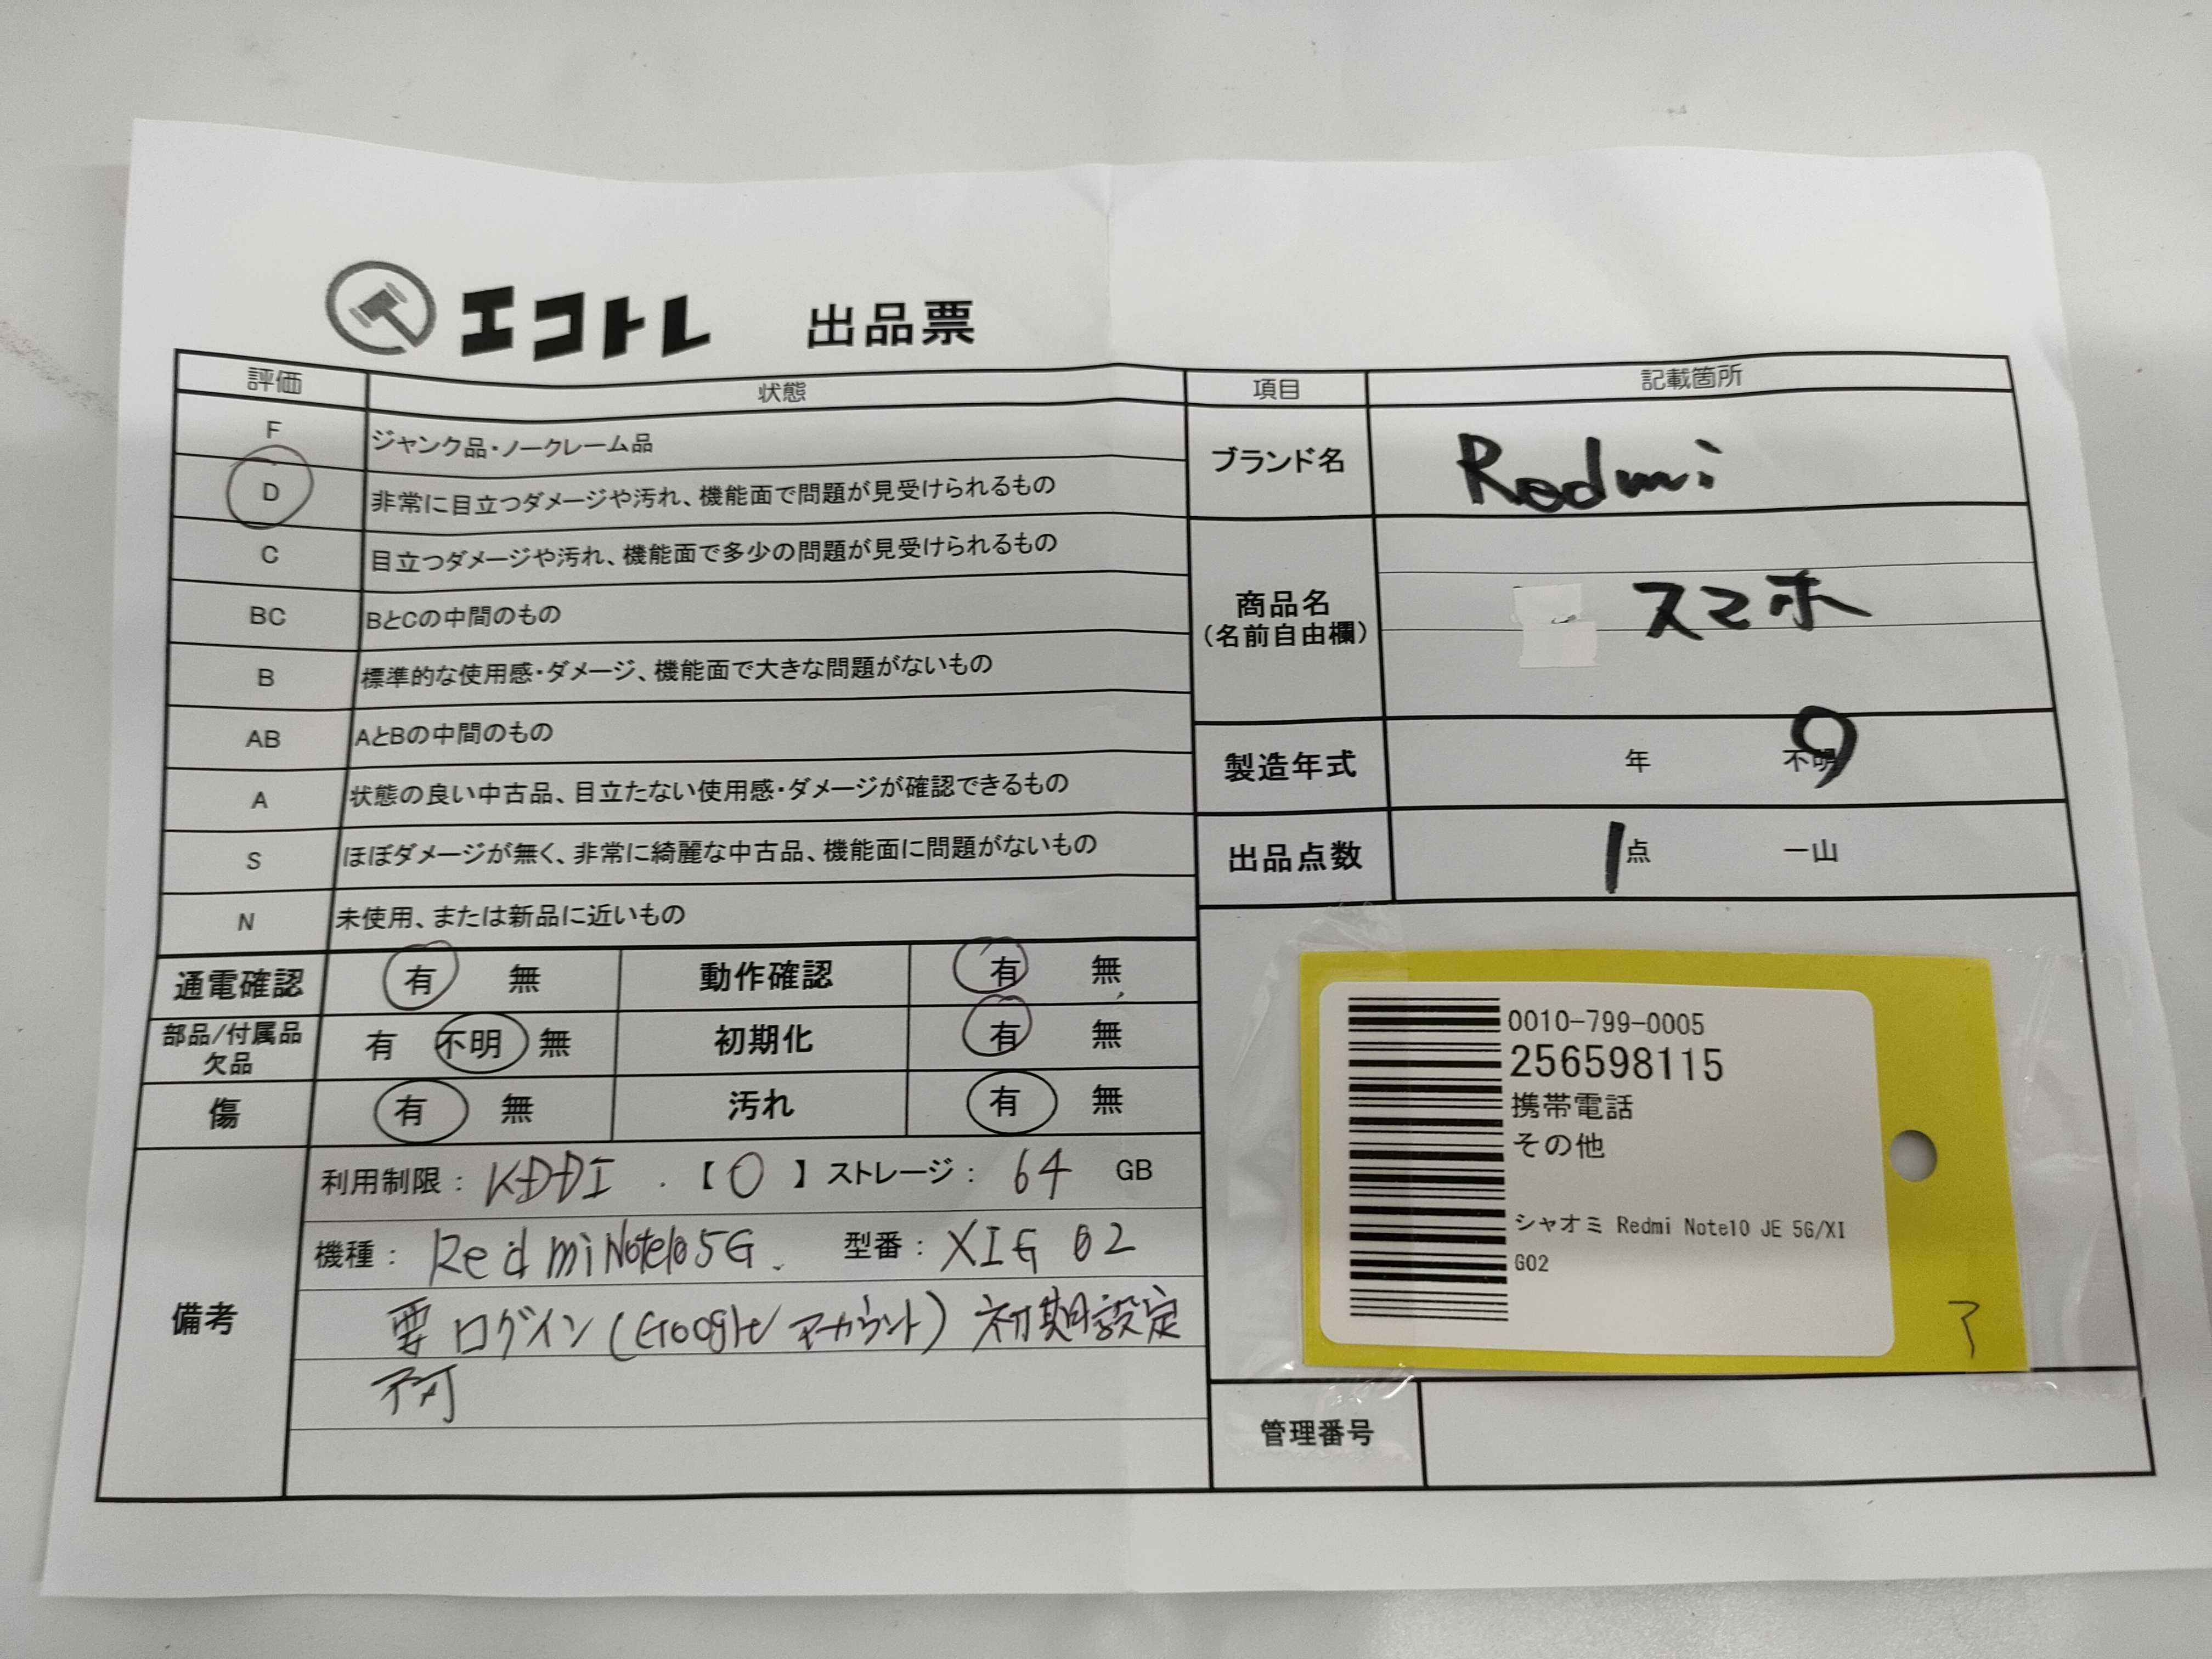 エコトレ 出品票
評価 状態
F ジャンク品・ノークレーム品
D 非常に目立つダメージや汚れ、機能面で問題が見受けられるもの
C 目立つダメージや汚れ、機能面で多少の問題が見受けられるもの
BC BとCの中間のもの
B 標準的な使用感・ダメージ、機能面で大きな問題がないもの
AB AとBの中間のもの
A 状態の良い中古品、目立たない使用感・ダメージが確認できるもの
S ほぼダメージが無く、非常に綺麗な中古品、機能面に問題がないもの
N 未使用、または新品に近いもの
通電確認 有 無 動作確認 有 無
部品/付属品 欠品 有 不明 無 初期化 有 無
傷 有 無 汚れ 有 無
備考
利用制限： KDDI 【 〇 】 ストレージ： 64 GB
機種： Redmi Note10 5G 型番： XIG 02
要ログイン(Googleアカウント) 初期設定
不可
項目 記載箇所
ブランド名 Redmi
商品名
(名前自由欄) スマホ
製造年式 年 不明
出品点数 1点 一山
0010-799-0005
256598115
携帯電話
その他
シャオミ Redmi Note10 JE 5G/XI
G02
管理番号